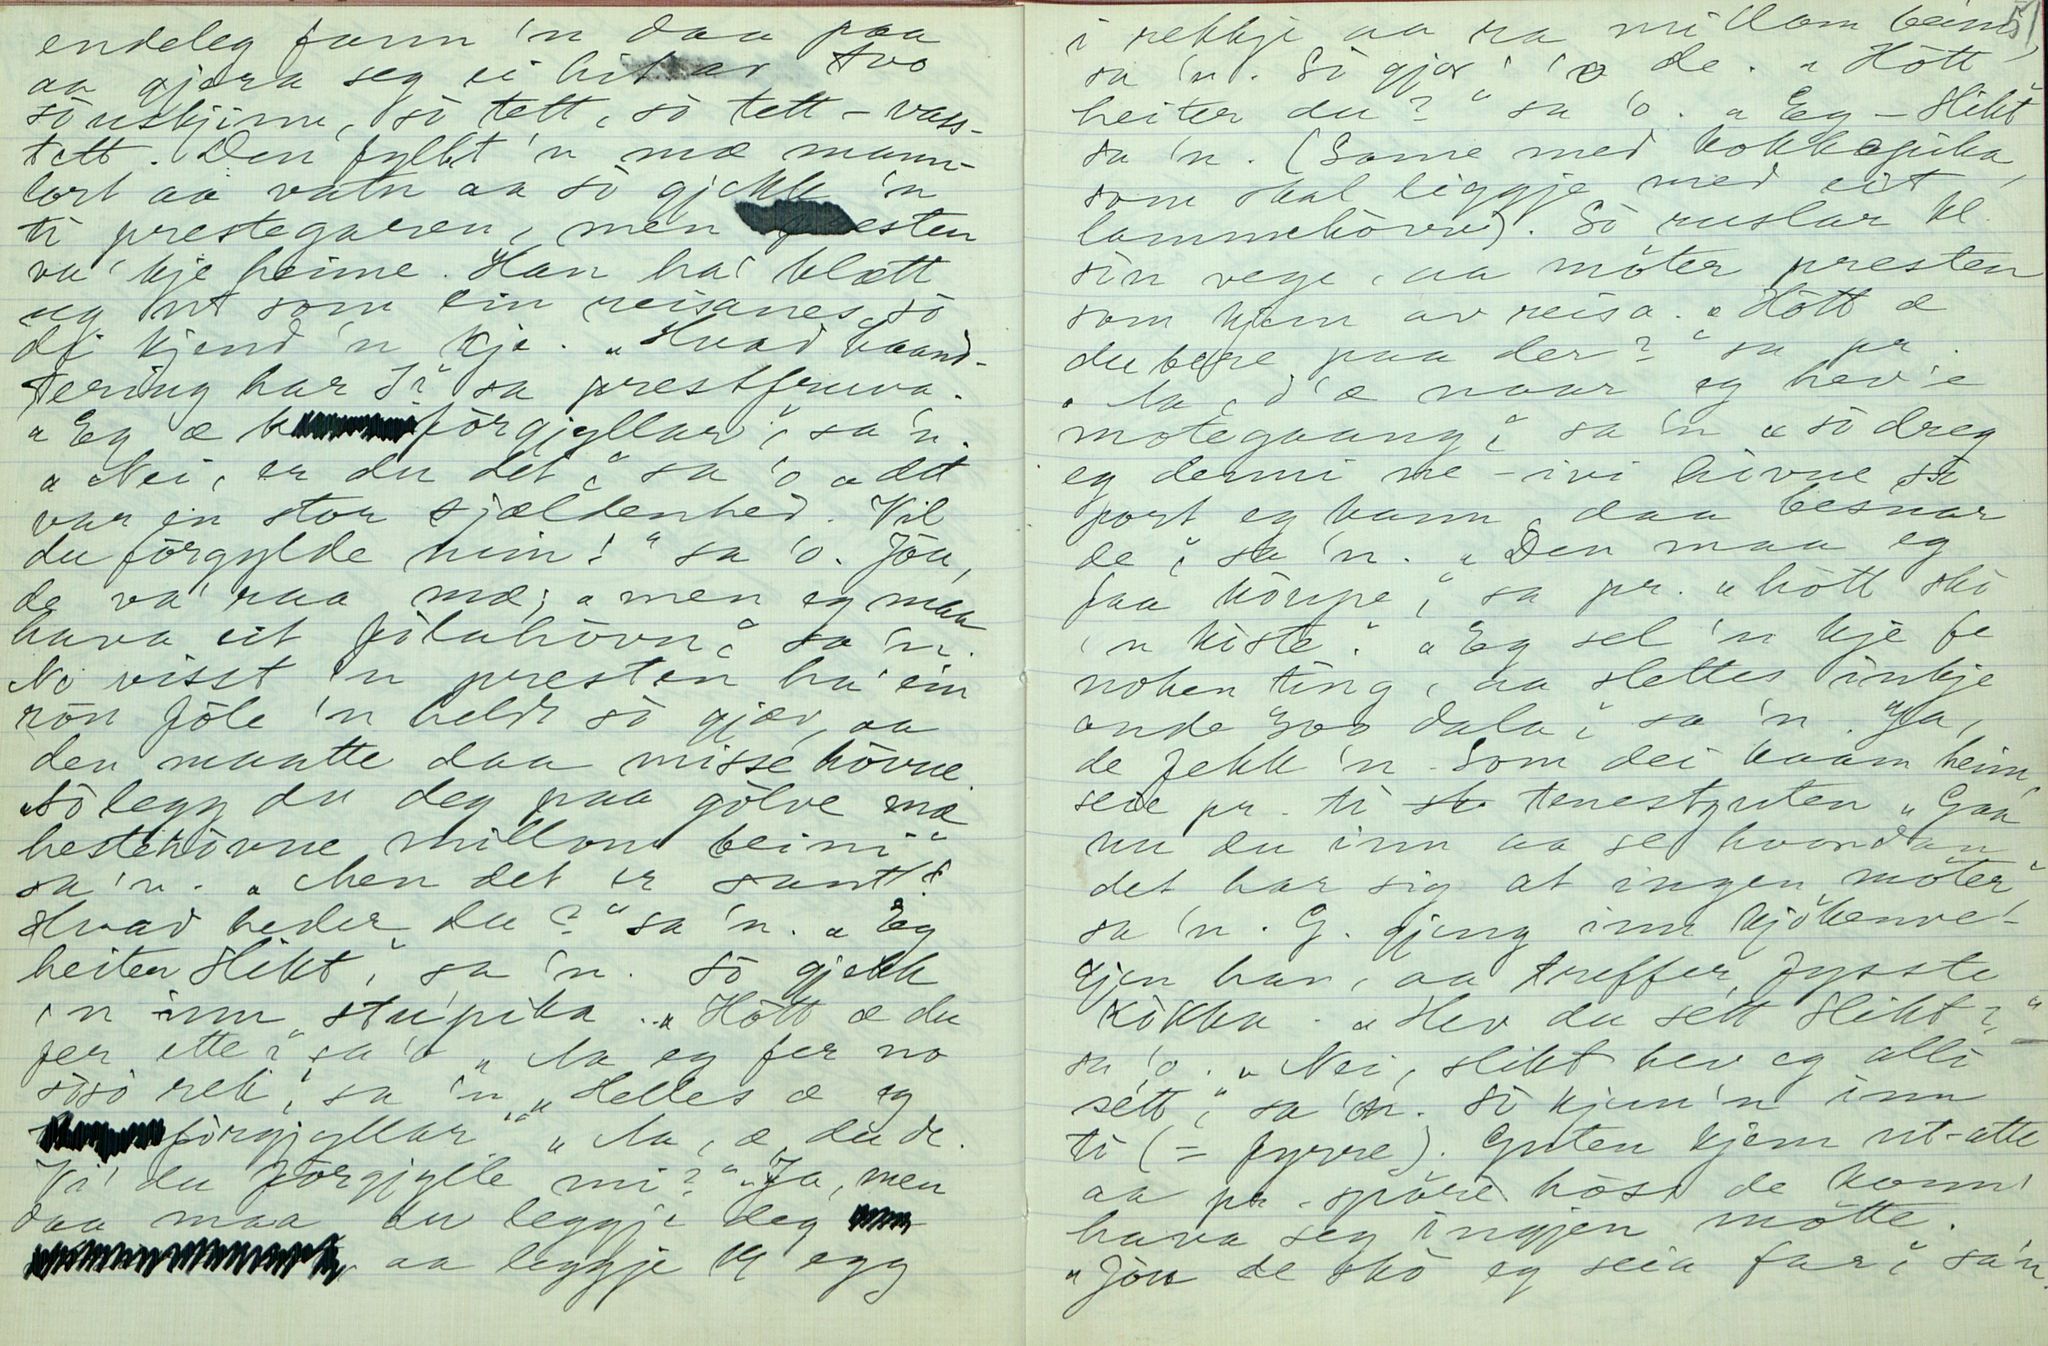 endeleg fann 'n daa paa
aa gjera seg ei hit av tvo
söuskjinn, sò tett, sò tett - vass-
tett. Den fyllt 'n mæ mann-
lort aa vatn aa sò gjekk 'n
ti prestegaren, men presten
va' kje heime. Han ha' klætt
seg ut som ein reisanes, sò
dei kjend 'n kje. "Hvad haand-
tering har I?" sa prestfruva.
"Eg æ förgjyllar", sa 'n.
"Nei, er du det," sa 'o "det
var en stor sjældenhed. Vil
du förgylde min!" sa 'o. Jöu,
de va' raa mæ; "men eg maa
hava eit fölahövu", sa 'n.
No visst 'n presten ha' ein
rön föle 'n heldt sò gjæv, aa
den maatte daa misse hövue
"Sò legg du deg paa gölve mæ
hestehövue millom beini"
sa 'n. "Men det er sant!
Hvad heder du?" sa 'n. "Eg
heiter Slikt", sa 'n. Sò gjekk
'n inn stu'pika. "Hött æ du
fer ette?" sa 'o "Aa eg fer no
sòsò rek", sa 'n, "Helles æ eg
förgjyllar." "Aa, æ du de.
Vi' du förgjylle mi?" "Ja, men
daa maa du leggje deg
aa leggje 14 egg
51
i rekkje aa ra millom beini",
sa 'n. Sò gjor' 'o de. "Hött
heiter du?" sa 'o. "Eg - Slikt"
sa 'n. (Same med kokkepika,
som skal liggje med eit
lammehövu). Sò ruslar kl.
sin vege, aa möter presten
som kjem av reisa. "Hött æ
du bere paa der?" sa pr.
"Aa, d'æ naar eg hev'e
motegaang", sa 'n "sò dreg
eg dermi ne - ivi hivne sò
fort eg kann, daa besnar
de", sa 'n. "Den maa eg
faa köupe", sa pr. "hött ska
'n kiste." "Eg sel 'n kje fe
noken ting, aa slettes inkje
onde 300 dala", sa 'n. Ja,
de fekk 'n. Som dei kaam heim,
seie pr. ti tenestguten "Gaa
nu du inn aa se hvordan
det har sig at ingen möter"
sa 'n. G. gjeng inn kjökenve-
gjen han, aa treffer fysste
Kokka. "Hev du sett Slikt?"
sa 'o. "Nei, slikt hev eg alli
sett", sa 'n. Sò kjem 'n inn
ti (= fyrre). Guten kjem ut-atte
aa pr. spöre höss de konn'
hava seg ingjen mötte.
"Jöu de ska eg seia far", sa 'n.